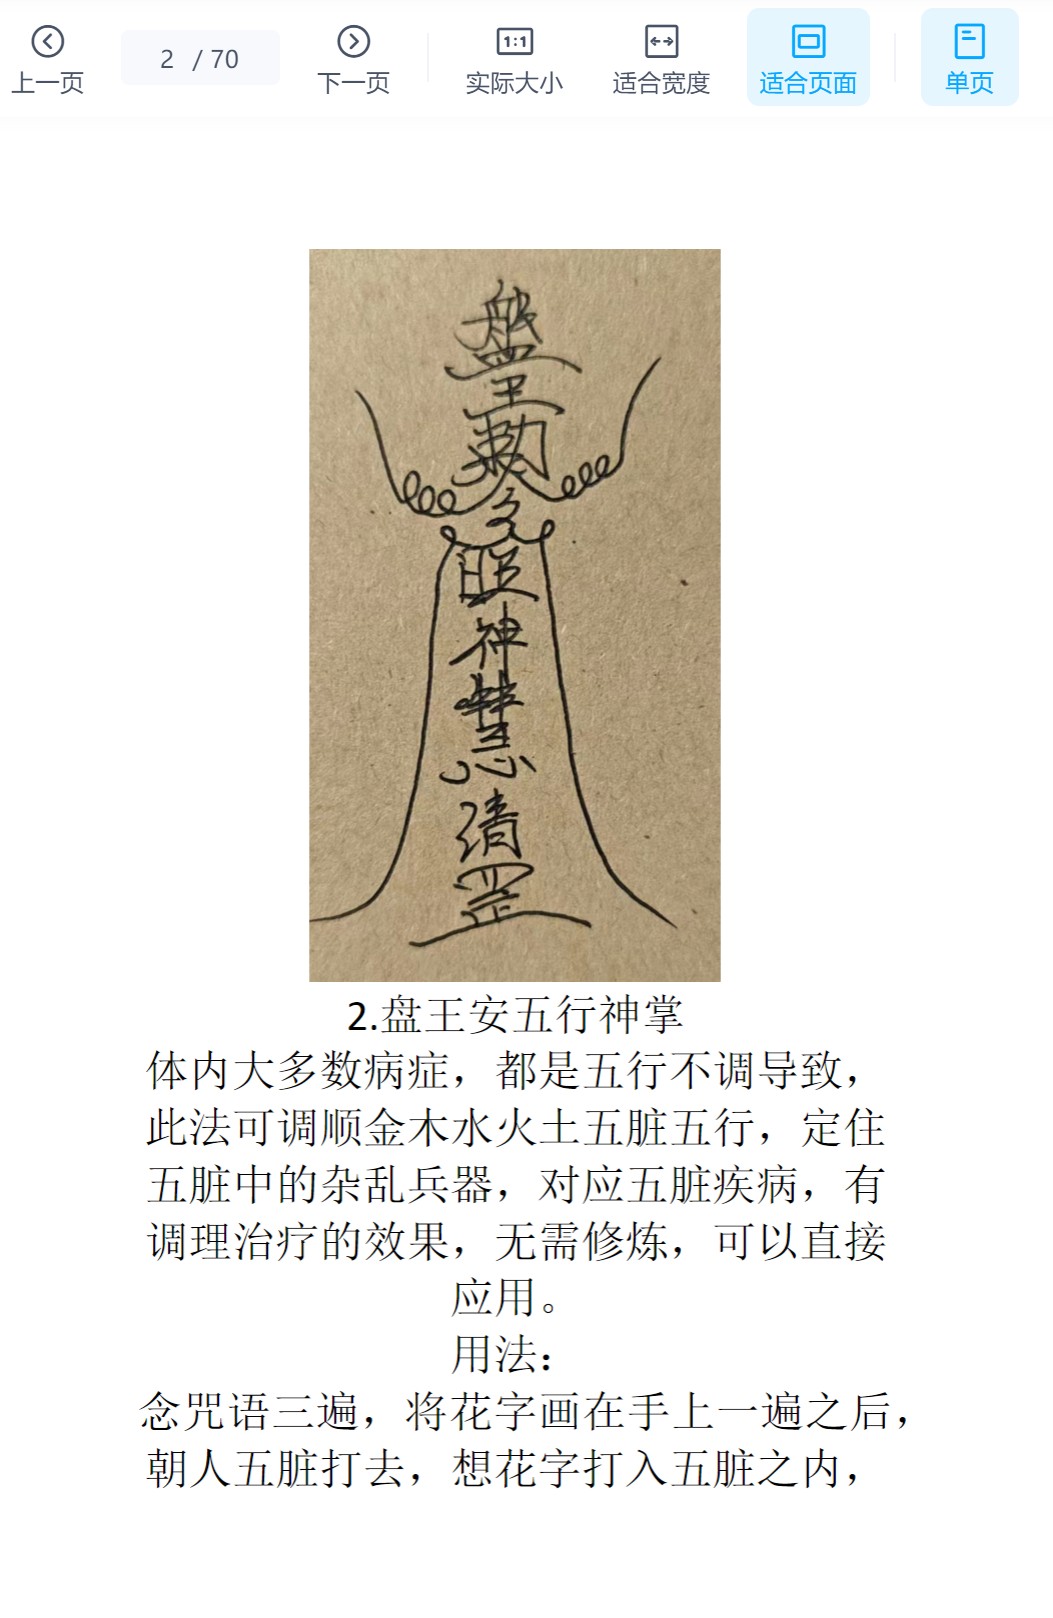 上一页
2 / 70
下一页
1:1
实际大小
适合宽度
适合页面
单页
盤
王
勅
令
旺
神
慧
清
罡
2.盘王安五行神掌
体内大多数病症，都是五行不调导致，
此法可调顺金木水火土五脏五行，定住
五脏中的杂乱兵器，对应五脏疾病，有
调理治疗的效果，无需修炼，可以直接
应用。
用法：
念咒语三遍，将花字画在手上一遍之后，
朝人五脏打去，想花字打入五脏之内，